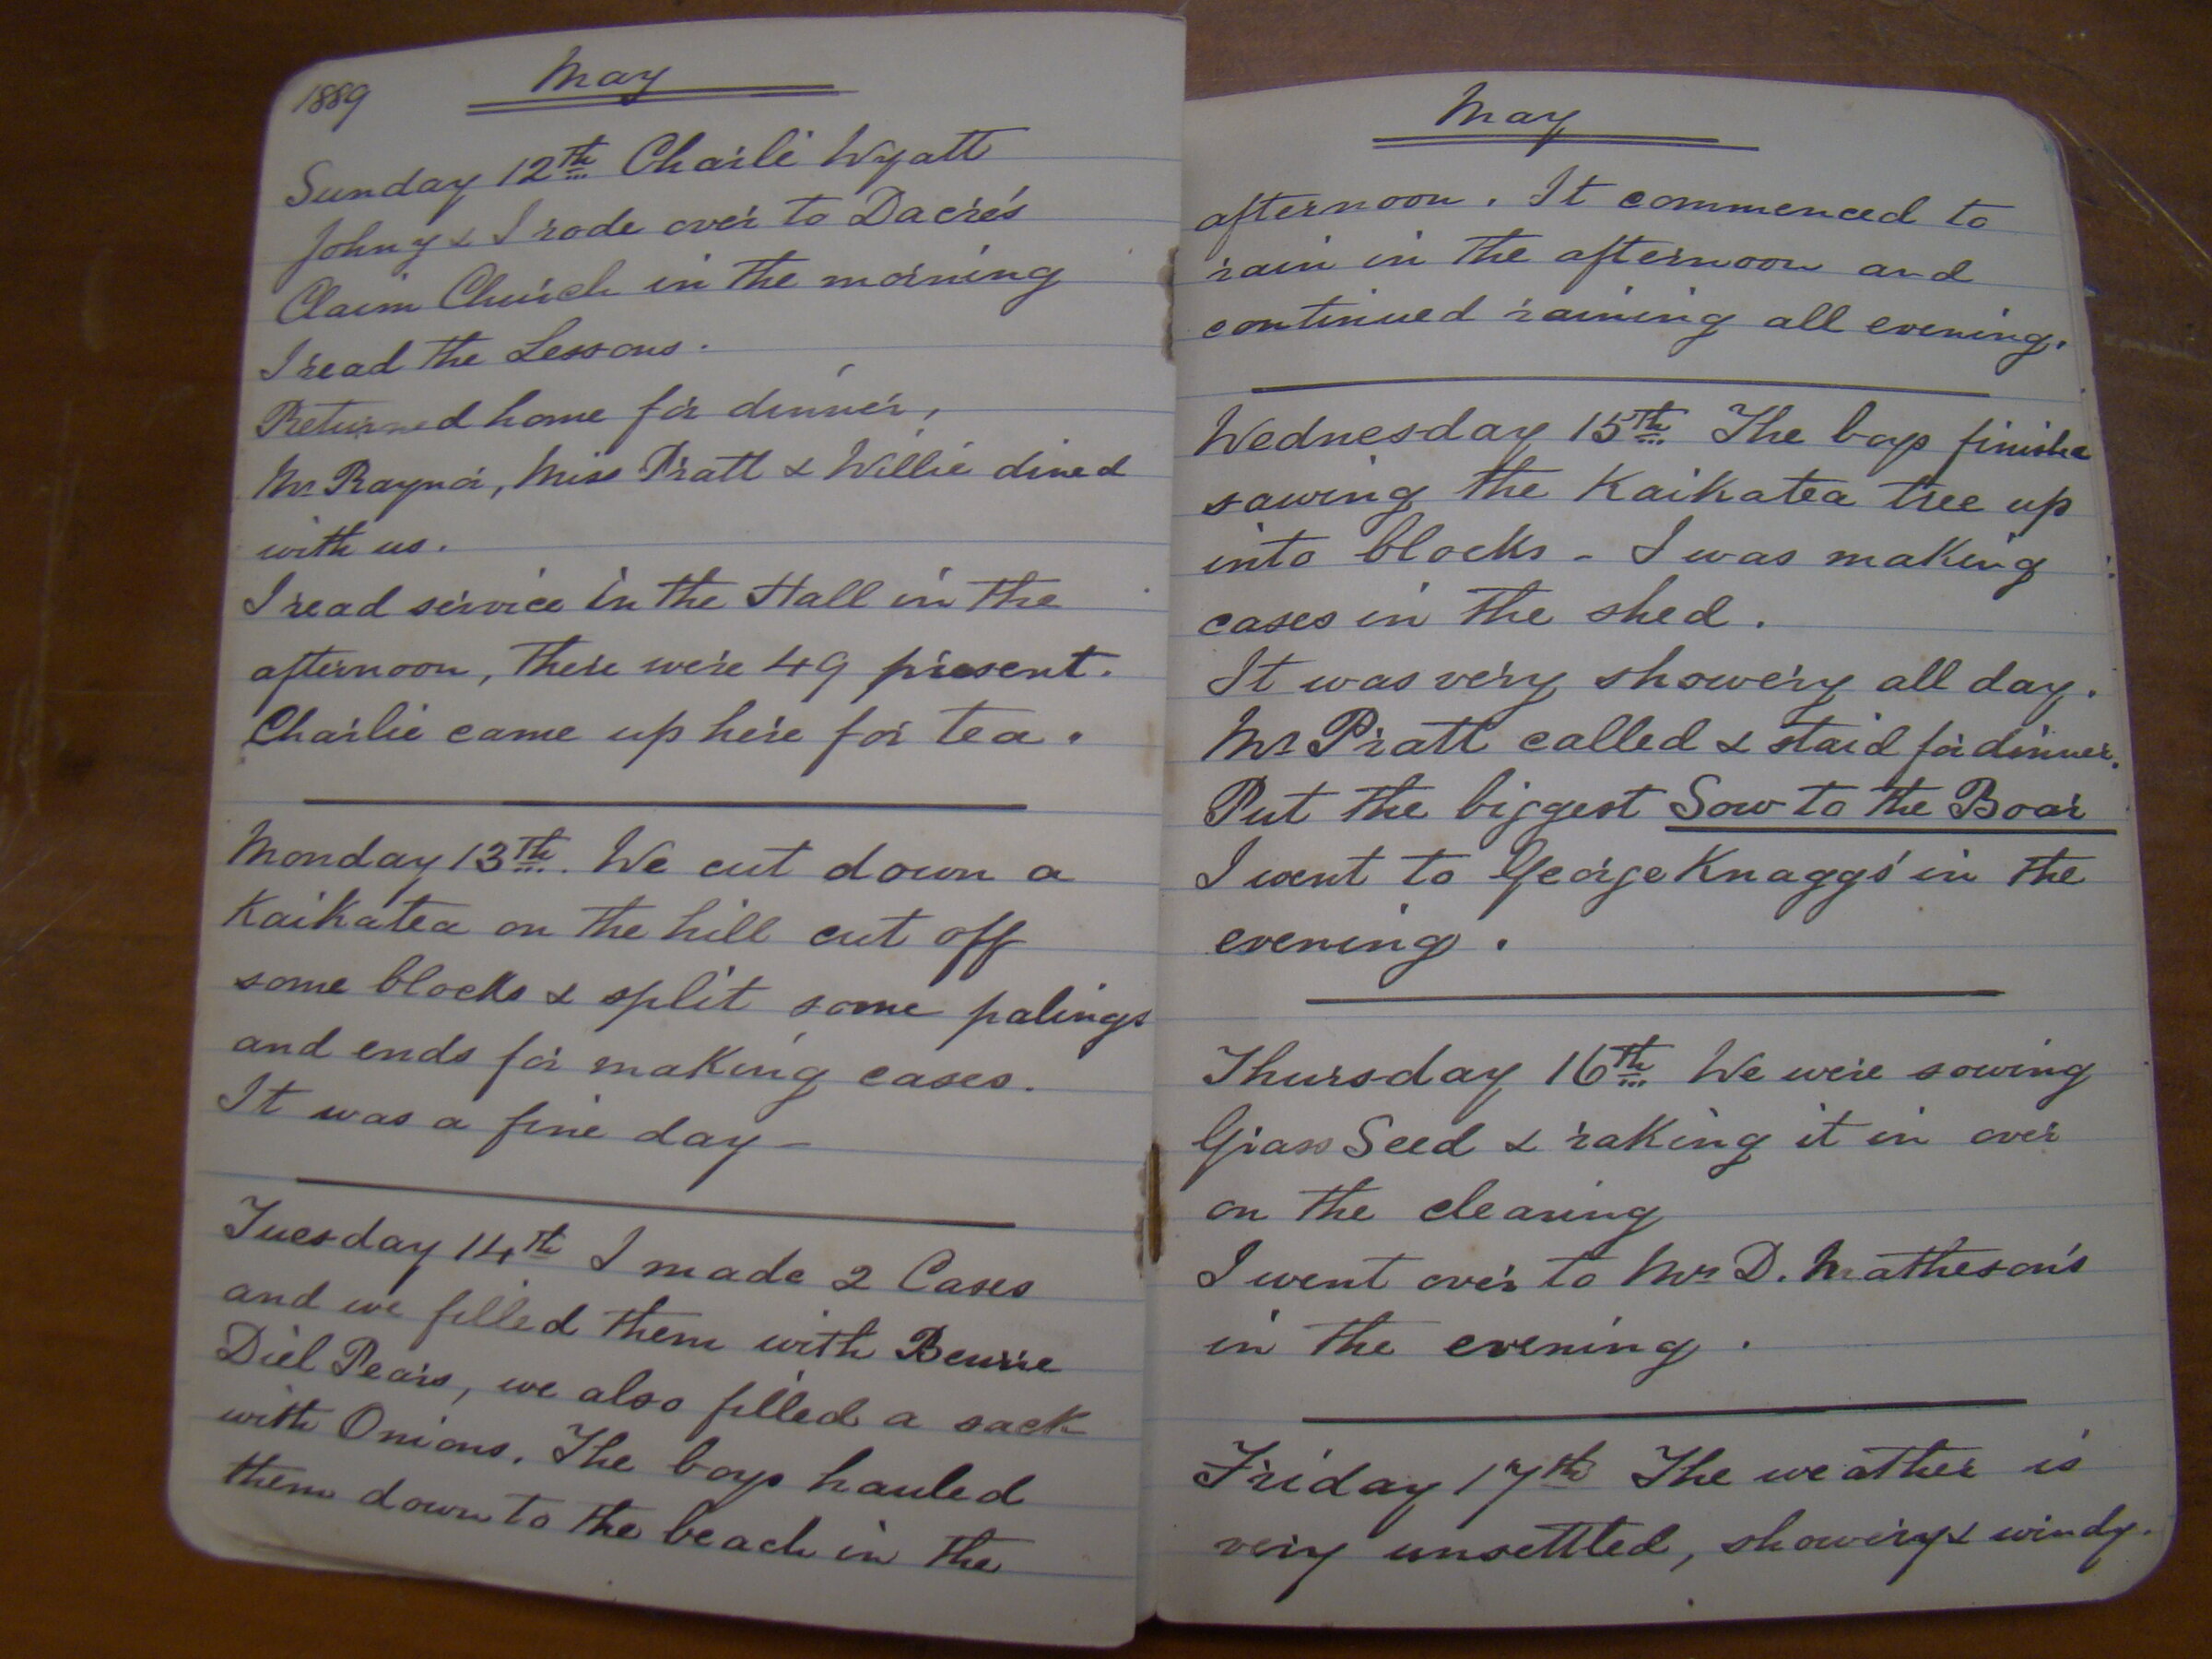 1889
May
Sunday 12th Charli Wyatt
Johny & I rode over to Dacre's
Claim Church in the morning
I read the Lessons.
Returned home for dinner,
Mr Raynor, Miss Pratt & Willie dined
with us.
I read service in the Hall in the
afternoon, there were 49 present.
Charlie came up here for tea.
Monday 13th. We cut down a
Kaikatea on the hill cut off
some blocks & split some palings
and ends for making cases.
It was a fine day -
Tuesday 14th I made 2 Cases
and we filled them with Beurre
Diel Pears, we also filled a sack
with Onions. The boys hauled
them down to the beach in the
May
afternoon. It commenced to
rain in the afternoon and
continued raining all evening.
Wednesday 15th The boys finishe
sawing the Kaikatea tree up
into blocks - I was making
cases in the shed.
It was very showery all day.
Mr Pratt called & staid for dinner.
Put the biggest Sow to the Boar
I went to George Knaggs' in the
evening.
Thursday 16th We were sowing
Grass Seed & raking it in over
on the clearing
I went over to Mr D. Matheson's
in the evening.
Friday 17th The weather is
very unsettled, showery & windy.